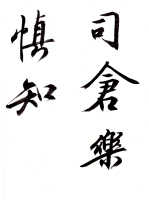 司倉樂
慎知